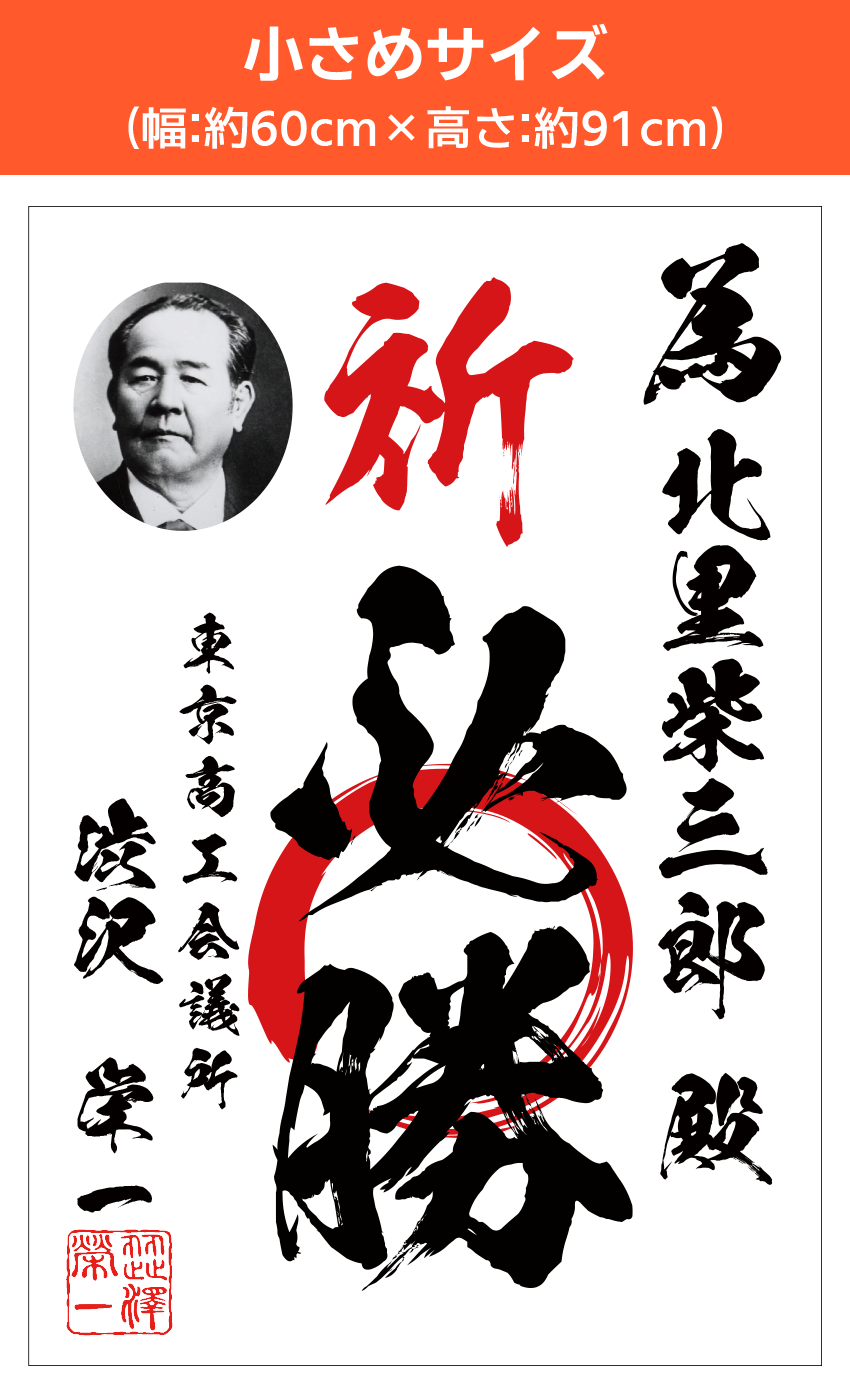 小さめサイズ
（幅：約60cm×高さ：約91cm）
為 北里柴三郎 殿
祈
必勝
東京高工会議所
渋沢 栄一
澁澤
榮一